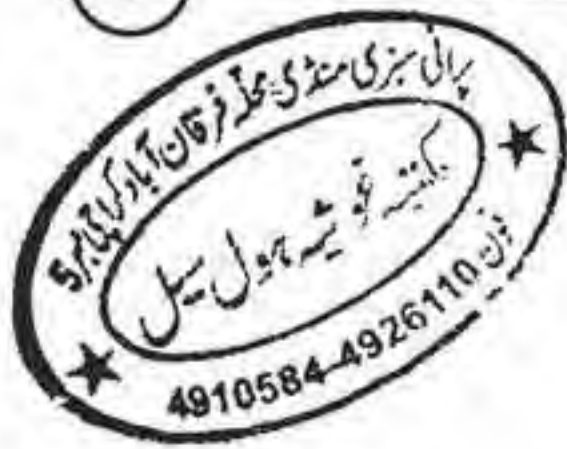 پرانی سبزی منڈی محلہ فرقان آباد کراچی نمبر 5
مکتبہ غوثیہ ہول سیل
فون 4926110-4910584